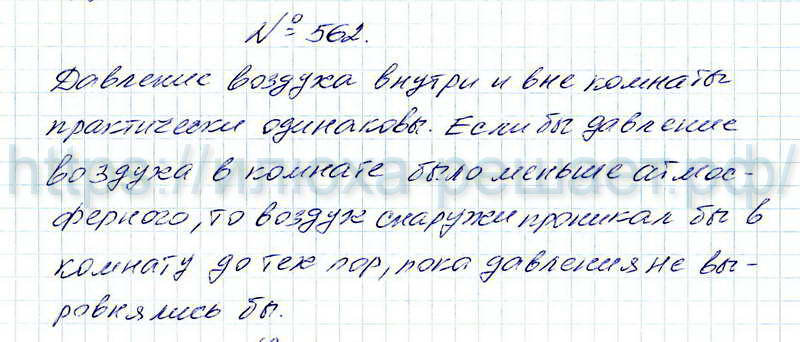 № 562.
Давление воздуха внутри и вне комнаты
практически одинаковы. Если бы давление
воздуха в комнате было меньше атмос-
ферного, то воздух снаружи проникал бы в
комнату до тех пор, пока давления не вы-
ровнялись бы.